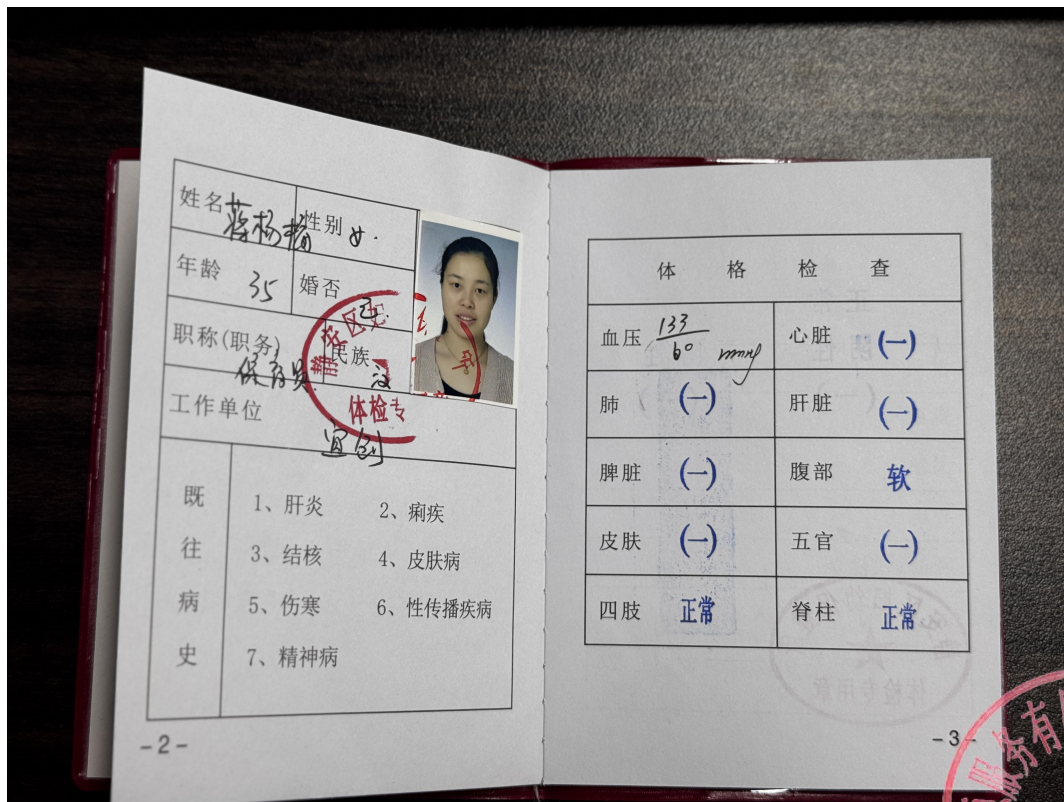 姓名 蒋杨楠 性别 女.
年龄 35 婚否 已
职称(职务) 保育员 民族 汉
工作单位 宜创
静安区
体检专
既往病史
1、肝炎 2、痢疾
3、结核 4、皮肤病
5、伤寒 6、性传播疾病
7、精神病
-2-
体格检查
血压 133/60 mmHg 心脏 (一)
肺 (一) 肝脏 (一)
脾脏 (一) 腹部 软
皮肤 (一) 五官 (一)
四肢 正常 脊柱 正常
体检专用章
-3-
服务有